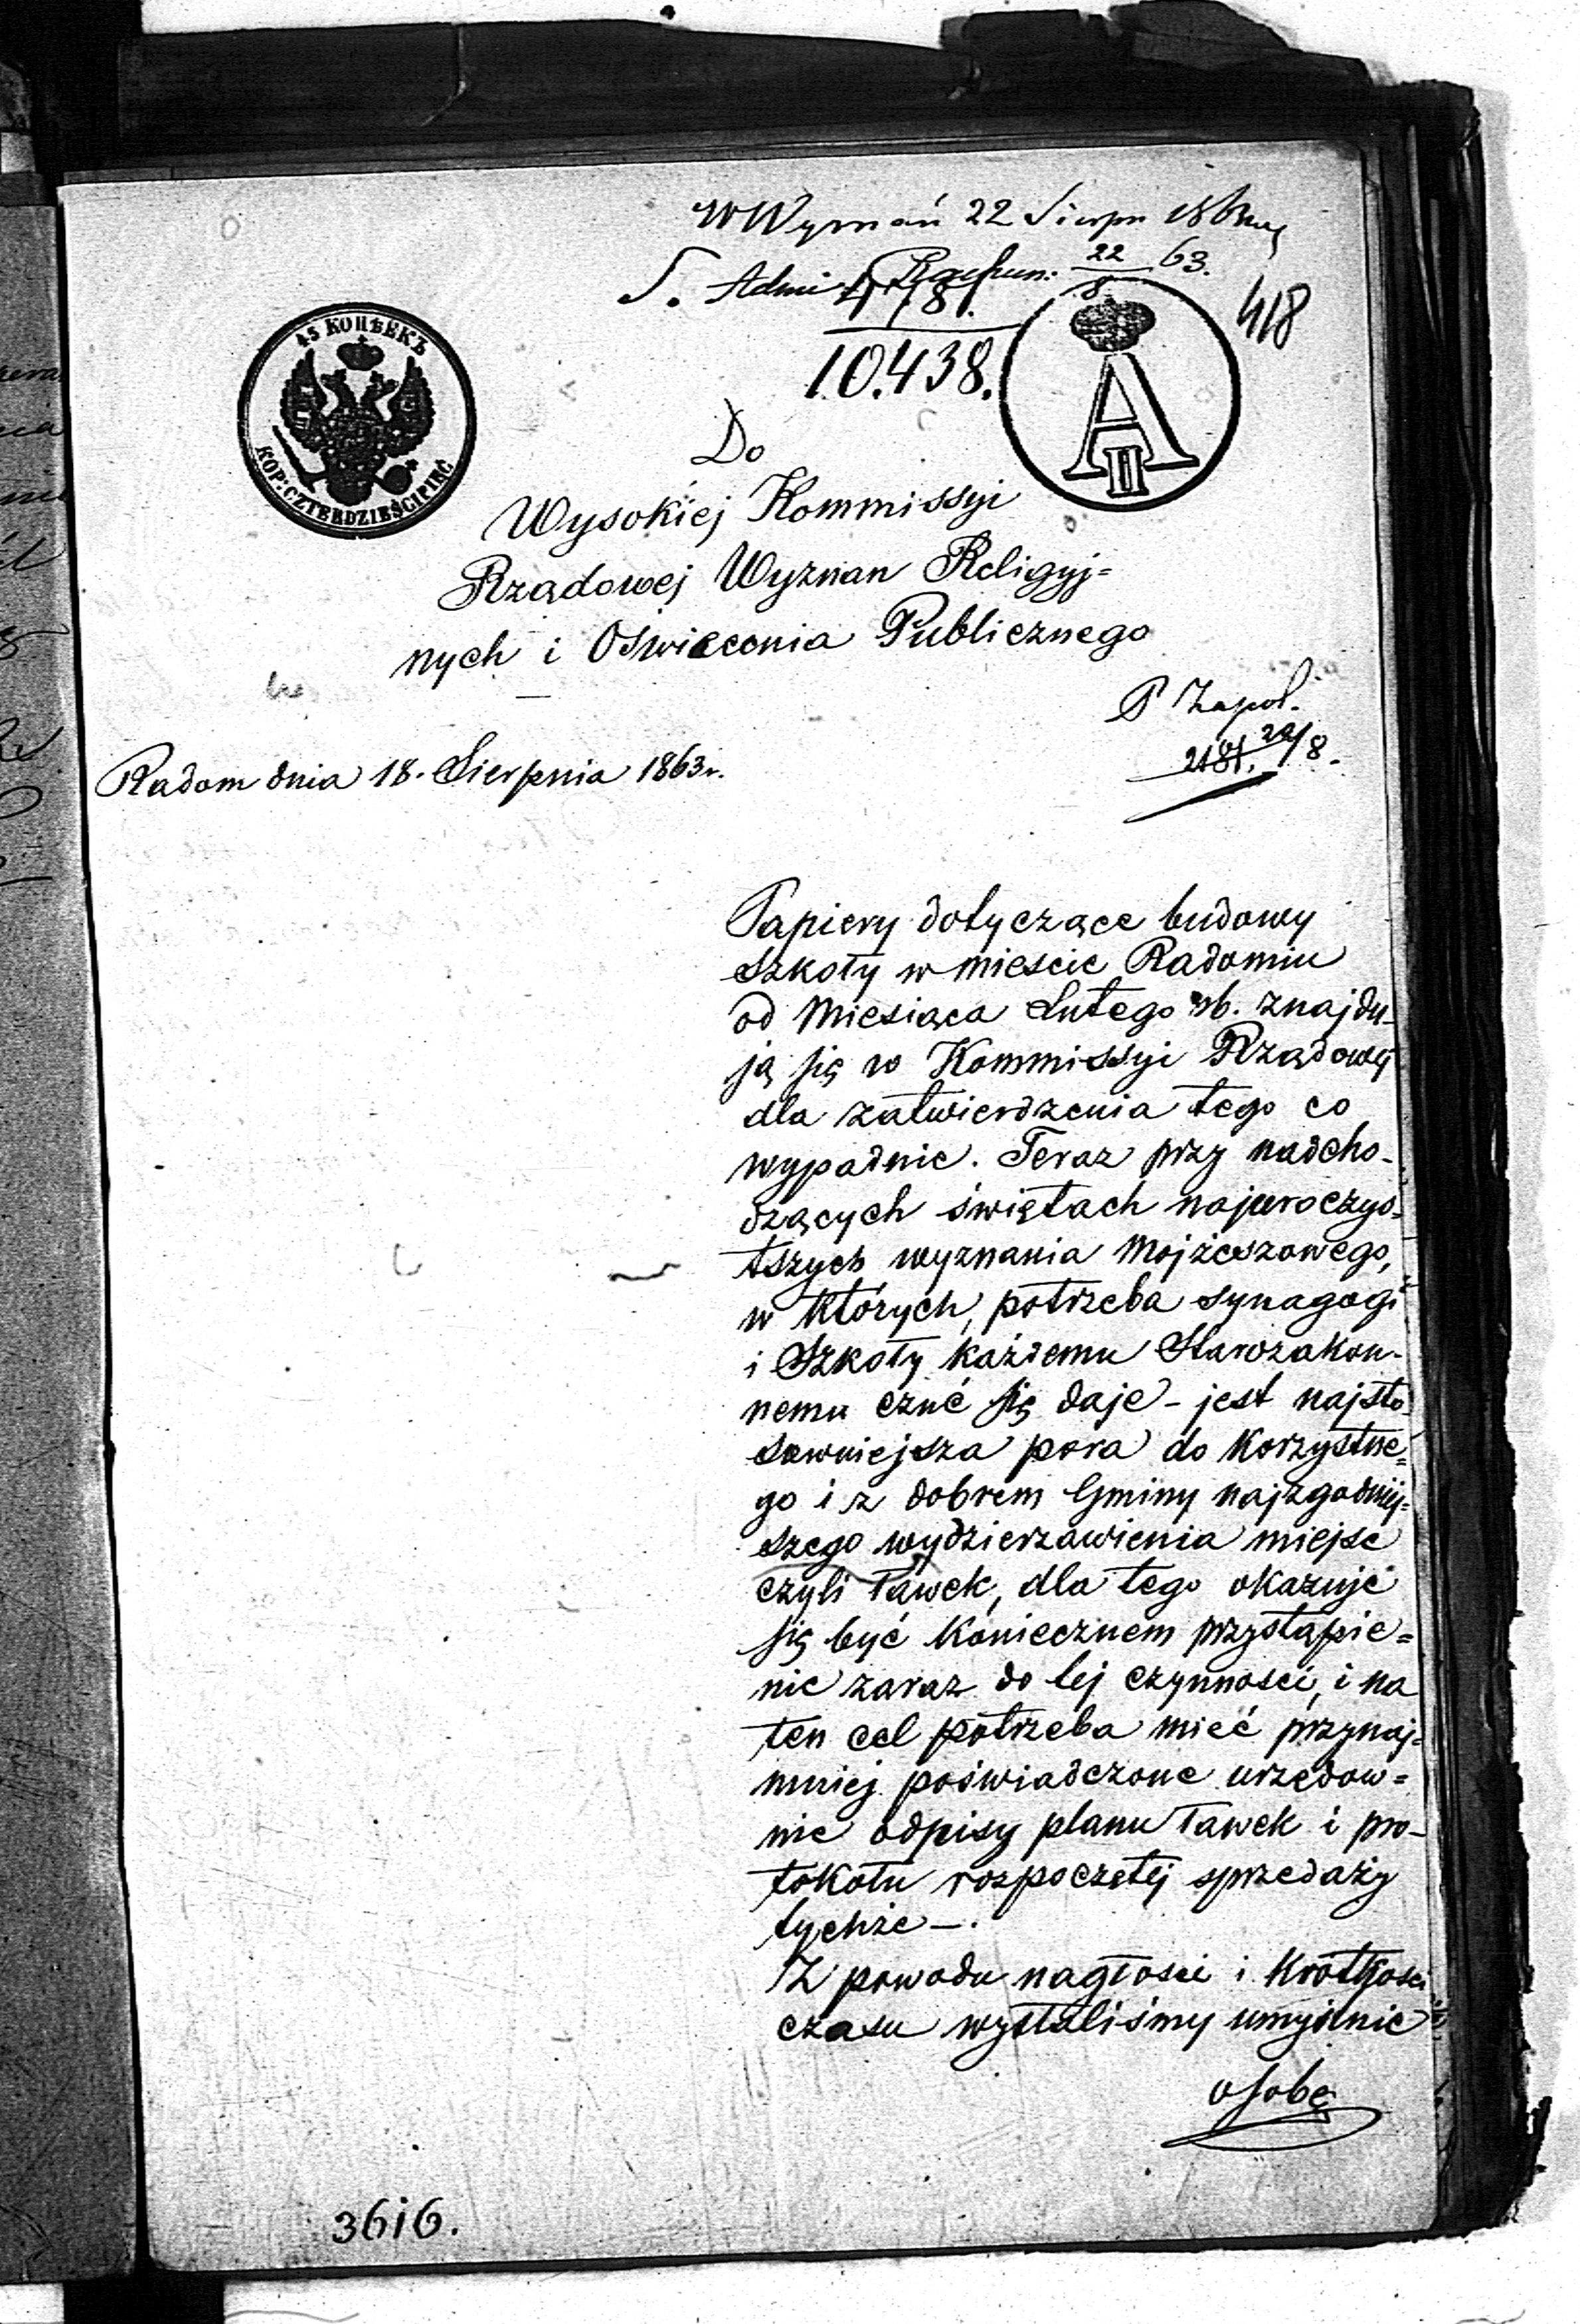 W Wyznań 22 Sierpn 1863
S. Admi. Rachun: 22/8 63.
418
4781.
10.438.
45 КОПѢЕКЪ
KOP: CZTERDZIEŚCIPIĘĆ
A II
Do
Wysokiej Kommissyi
Rządowej Wyznan Religyj=
nych i Oswiecenia Publicznego
P Zapol.
2181. 22/8.
Radom dnia 18. Sierpnia 1863 r.
Papiery dotyczące budowy
Szkoły w miescie Radomiu
od Miesiąca Lutego rb. znajdu-
ją się w Kommissyi Rządowej
dla zatwierdzenia tego co
wypadnie. Teraz przy nadcho-
dzących świętach najuroczys-
tszych wyznania Mojżeszowego,
w których, potrzeba synagogi
i Szkoły każdemu Starozakon-
nemu czuć się daje - jest najsto
sowniejsza pora do Korzystne=
go i z dobrem Gminy najzgodniej=
szego wydzierzawienia miejsc
czyli Ławek, dla tego okazuje
się być Koniecznem przystąpie=
nie zaraz do tej czynności, i na
ten cel potrzeba mieć przynaj=
mniej poświadczone urzędow=
nie odpisy planu Ławek i pro-
tokołu rozpoczętej sprzedaży
tychże -.
Z powodu nagłości i Krótkości
czasu wysłaliśmy umyślnie
osobę
3616.